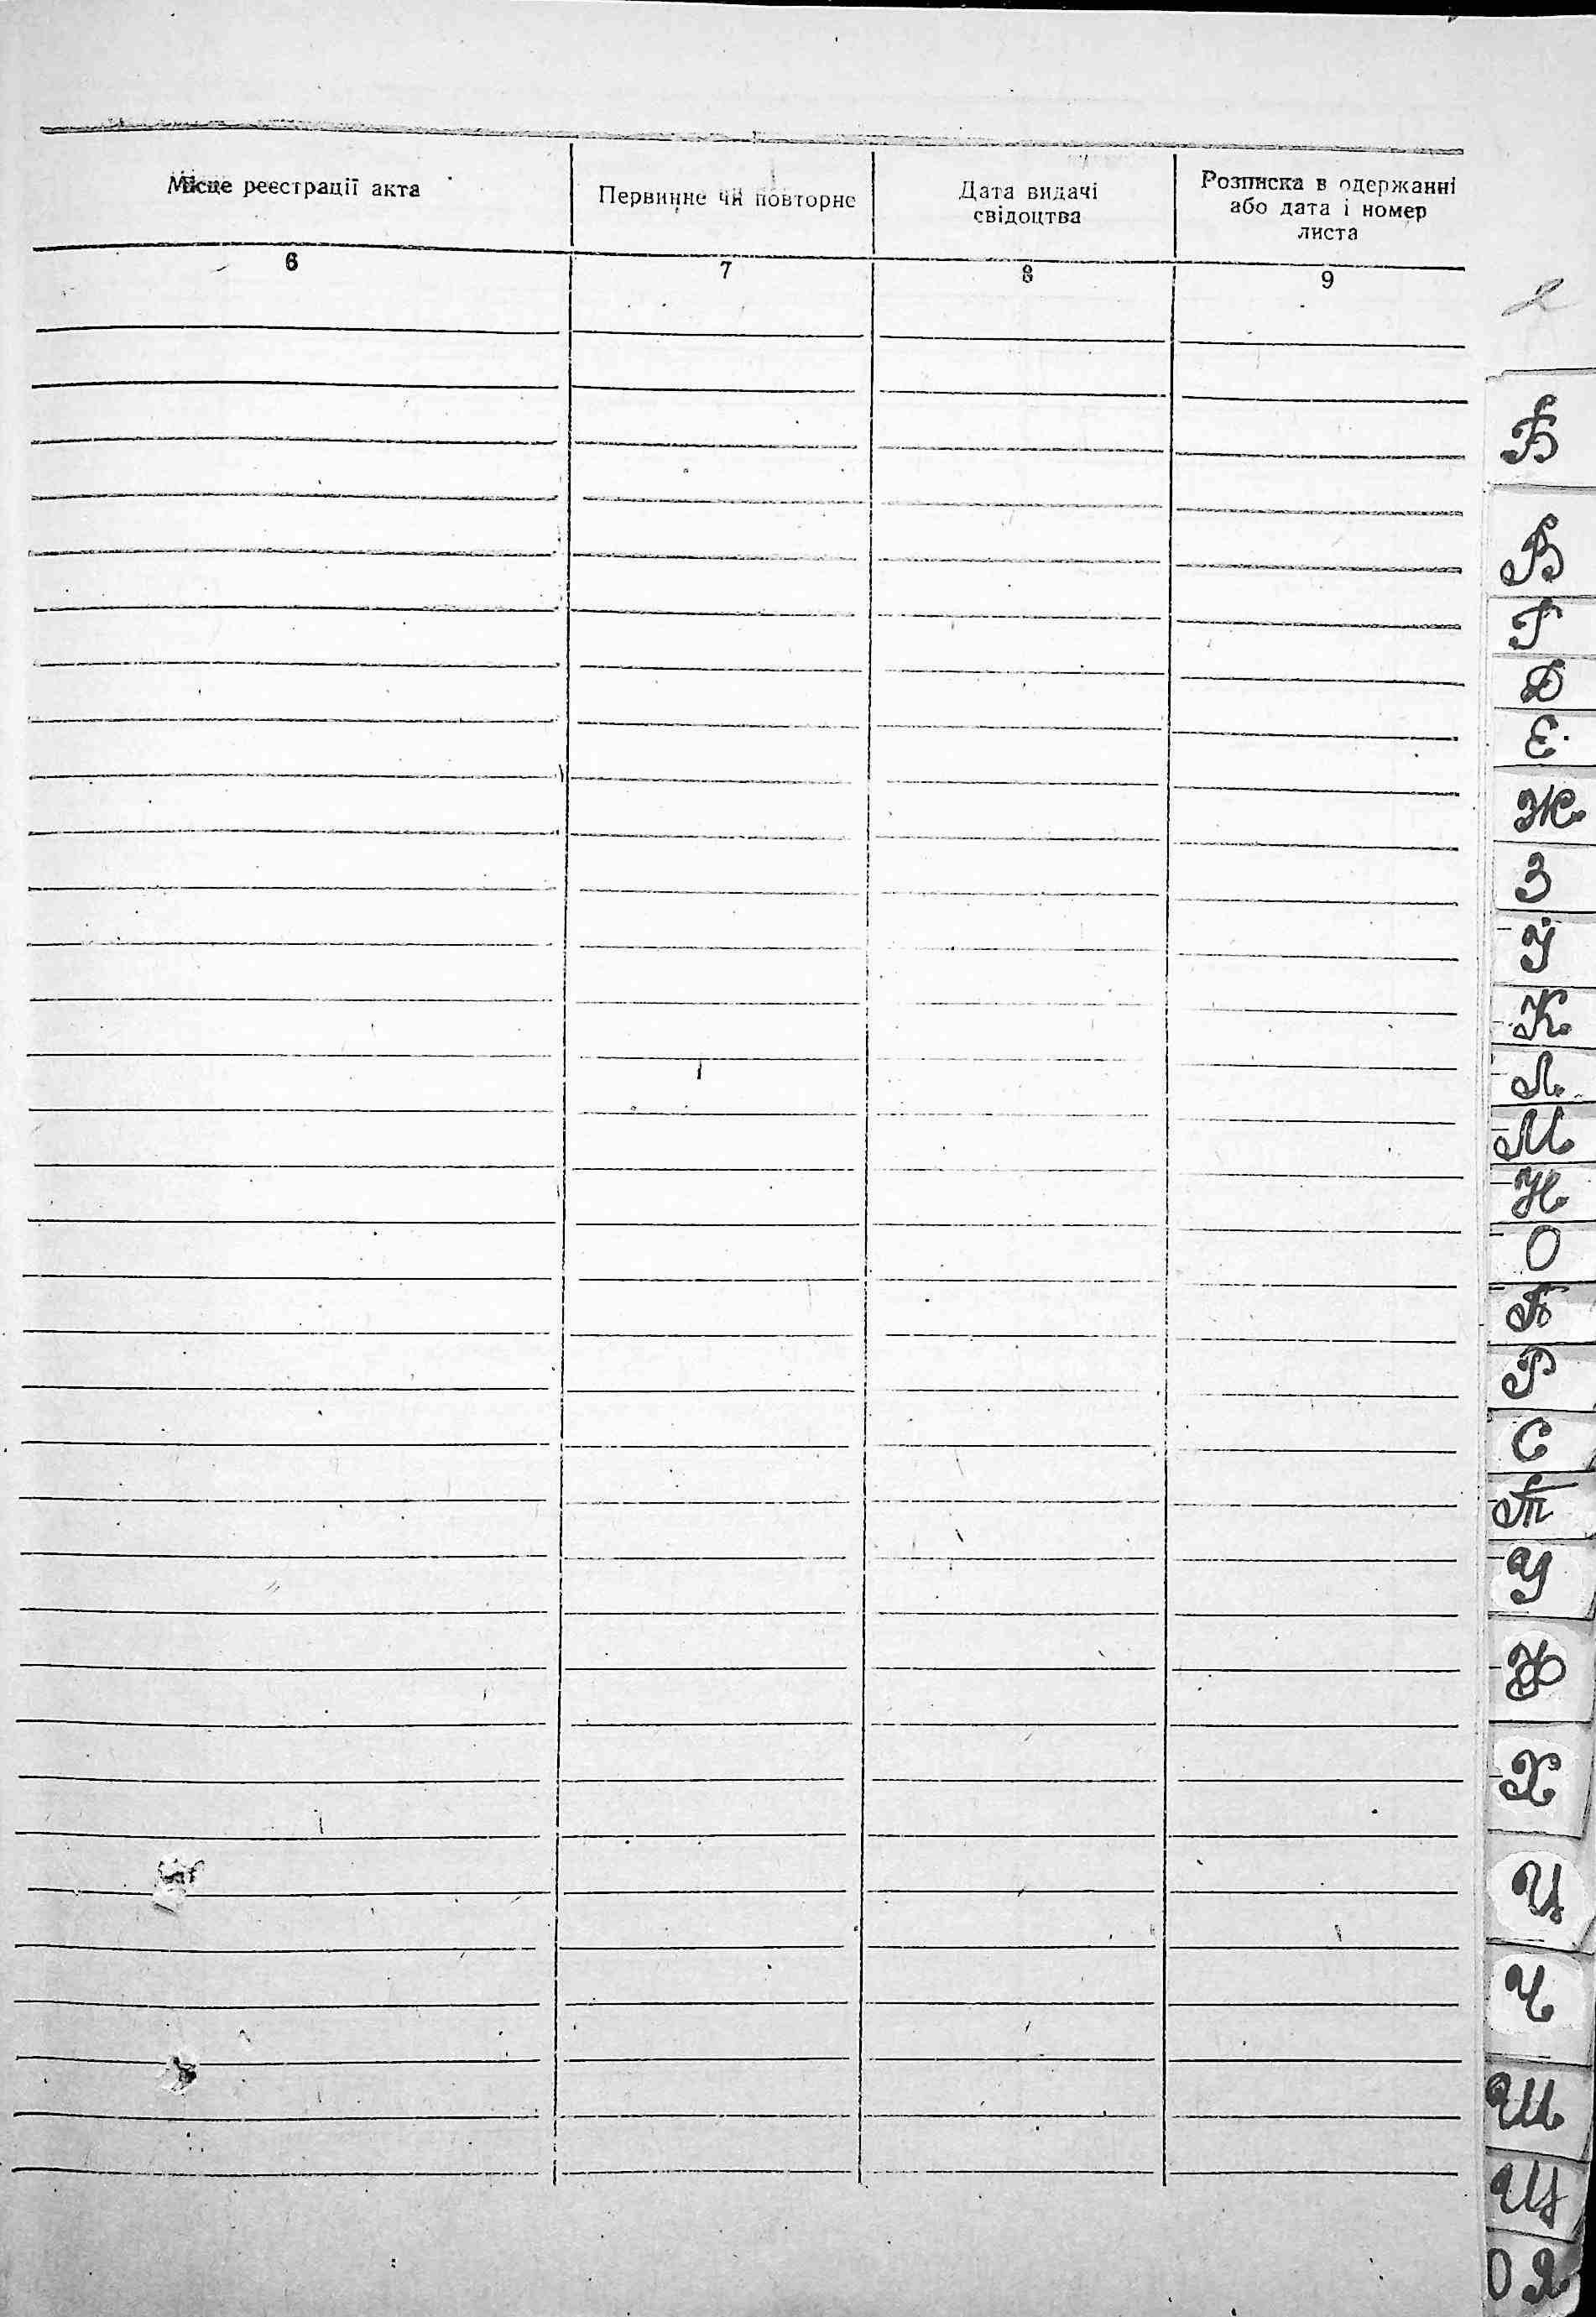 Місце реєстрації акта
Первинне чи повторне
Дата видачі
свідоцтва
Розписка в одержанні
або дата і номер
листа
6
7
8
9
2
Б
В
Г
Д
Е
Ж
З
Й
К
Л
М
Н
О
П
Р
С
Т
У
Ф
Х
Ц
Ч
Ш
Щ
Ю Я